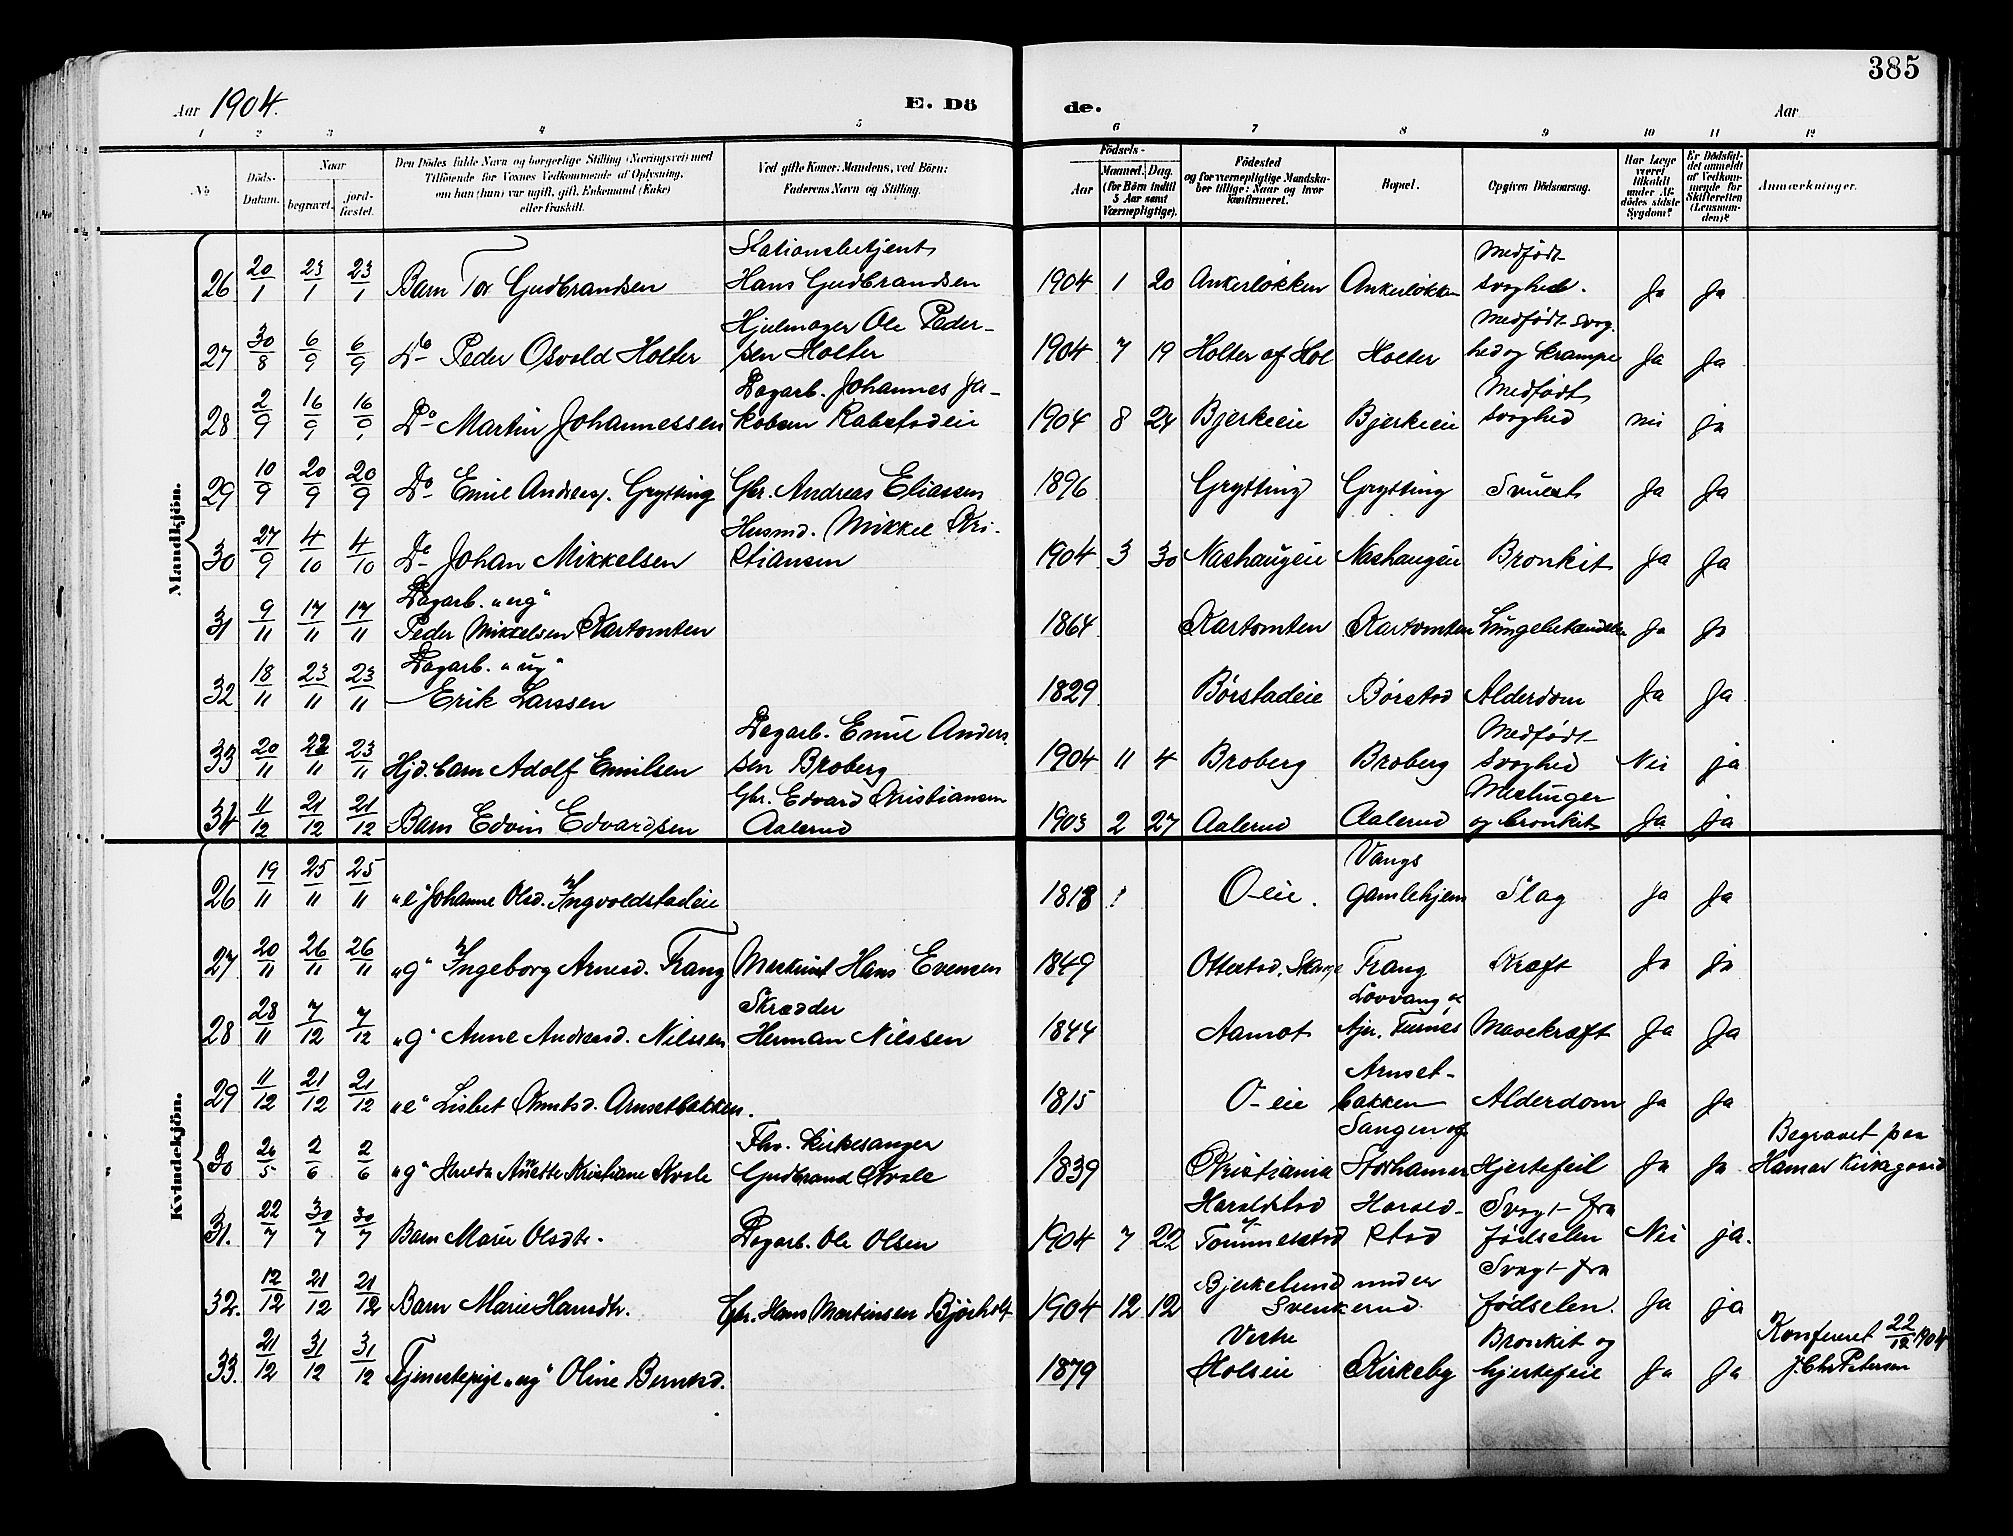 385
Aar 1904.
E. Dö
de.
Aar
1 2 3 4 5 6 7 8 9 10 11 12
No
Döds-Datum.
Naar
begravet.
jord-fæstet.
Den Dödes fulde Navn og borgerlige Stilling (Næringsvei) med
Tilföiende for Voxnes Vedkommende af Oplysning,
om han (hun) var ugift, gift, Enkemand (Enke)
eller fraskilt.
Ved gifte Koner: Mandens, ved Börn:
Faderens Navn og Stilling.
Födsels-
Aar
Maaned. Dag.
(for Börn indtil
5 Aar samt
Værnepligtige).
Födested
og for værnepligtige Mandska-
ber tillige: Naar og hvor
konfirmeret.
Bopæl.
Opgiven Dödsaarsag.
Har Læge
været
tilkaldt
under Af-
dödes sidste
Sygdom?
Er Dödsfal-
det anmeldt
af Vedkom-
mende for
Skifteretten
(Lensman-
den)?
Anmærkninger.
Mandkjön.
26 20/1 23/1 23/1 Barn Tor Gudbrandsen Stationsbetjent Hans Gudbrandsen 1904 1 20 Ankerløkken Ankerløkken Medfødt svaghed. Ja Ja
27 30/8 6/9 6/9 Do Peder Osvald Holter Hjulmager Ole Peder-sen Holter 1904 7 19 Holter af Hol Holter Medfødt svag-hed og krampe Ja Ja
28 2/9 16/9 16/9 Do Martin Johannessen Dagarb. Johannes Ja-kobsen Rabstadeie 1904 8 24 Bjerkeeie Bjerkeeie Medfødt svaghed nei ja
29 10/9 20/9 20/9 Do Emil Andreas. Grytting Gbr. Andreas Eliassen 1896 Grytting Grytting Ja Ja
30 27/9 4/10 4/10 Do Johan Mikkelsen Husmd. Mikkel Kri-stiansen 1904 3 30 Nashaugeie Nashaugeie Bronkit Ja Ja
31 9/11 17/11 17/11 Dagarb. "ug" Peder Mikkelsen Kartomten 1864 Kartomten Kartomten Lungebetændelse Ja Ja
32 18/11 23/11 23/11 Dagarb. "ug" Erik Larssen 1829 Børstadeie Børstad Alderdom Ja Ja
33 20/11 22/11 23/11 Hjd. barn Adolf Emilsen Dagarb. Emil Anders-sen Broberg 1904 11 4 Broberg Broberg Medfødt svaghed Nei ja
34 11/12 21/12 21/12 Barn Edvin Edvardsen Gbr. Edvard Kristiansen Aalerud 1903 2 27 Aalerud Aalerud Meslinger og bronkit Ja ja
Kvindekjön.
26 19/11 25/11 25/11 "e" Johanne Olsd. Ingvoldstadeie 1818 ! O-eie. Vangs gamlehjem Slag Ja Ja
27 20/11 26/11 26/11 "g" Ingeborg Arnesd. Frang Maskinist Hans Evensen 1849 Ottestad, Stange Frang Kræft Ja ja
28 28/11 7/12 7/12 "g" Anne Andersd. Nilssen Skrædder Herman Nilssen 1844 Aamot Lovvang Furnes Mavekræft Ja Ja
29 11/12 21/12 21/12 "e" Lisbet Knutsd. Arnsetbakken. 1815 O-eie Arnset-bakken Alderdom Ja Ja
30 26/5 2/6 2/6 "g" Hulda Anette Kristiane Kvale Fhv. Kirkesanger Gudbrand Kvale 1839 Kristiania Sangen af Storhamar Hjertefeil Ja Ja Begravet paa Hamar Kirkegaard
31. 22/7 30/7 30/7 Barn Marie Olsdtr. Dagarb. Ole Olsen 1904 7 22 Haraldstad Tommelstad Harald-stad Svagt fra fødselen Nei ja.
32. 12/12 21/12 21/12 Barn Marie Hansdtr. Gbr. Hans Martinsen Bjørholt 1904 12 12 Bjerkelund under Svenkerud Svagt fra fødselen. Ja ja
33. 21/12 31/12 31/12 Tjenestepige "ug" Oline Berntsd. 1879 Vestre Holseie Kirkeby Bronkit og hjertefeil Ja Ja Konfereret 22/12 1904 J. Chr Petersen